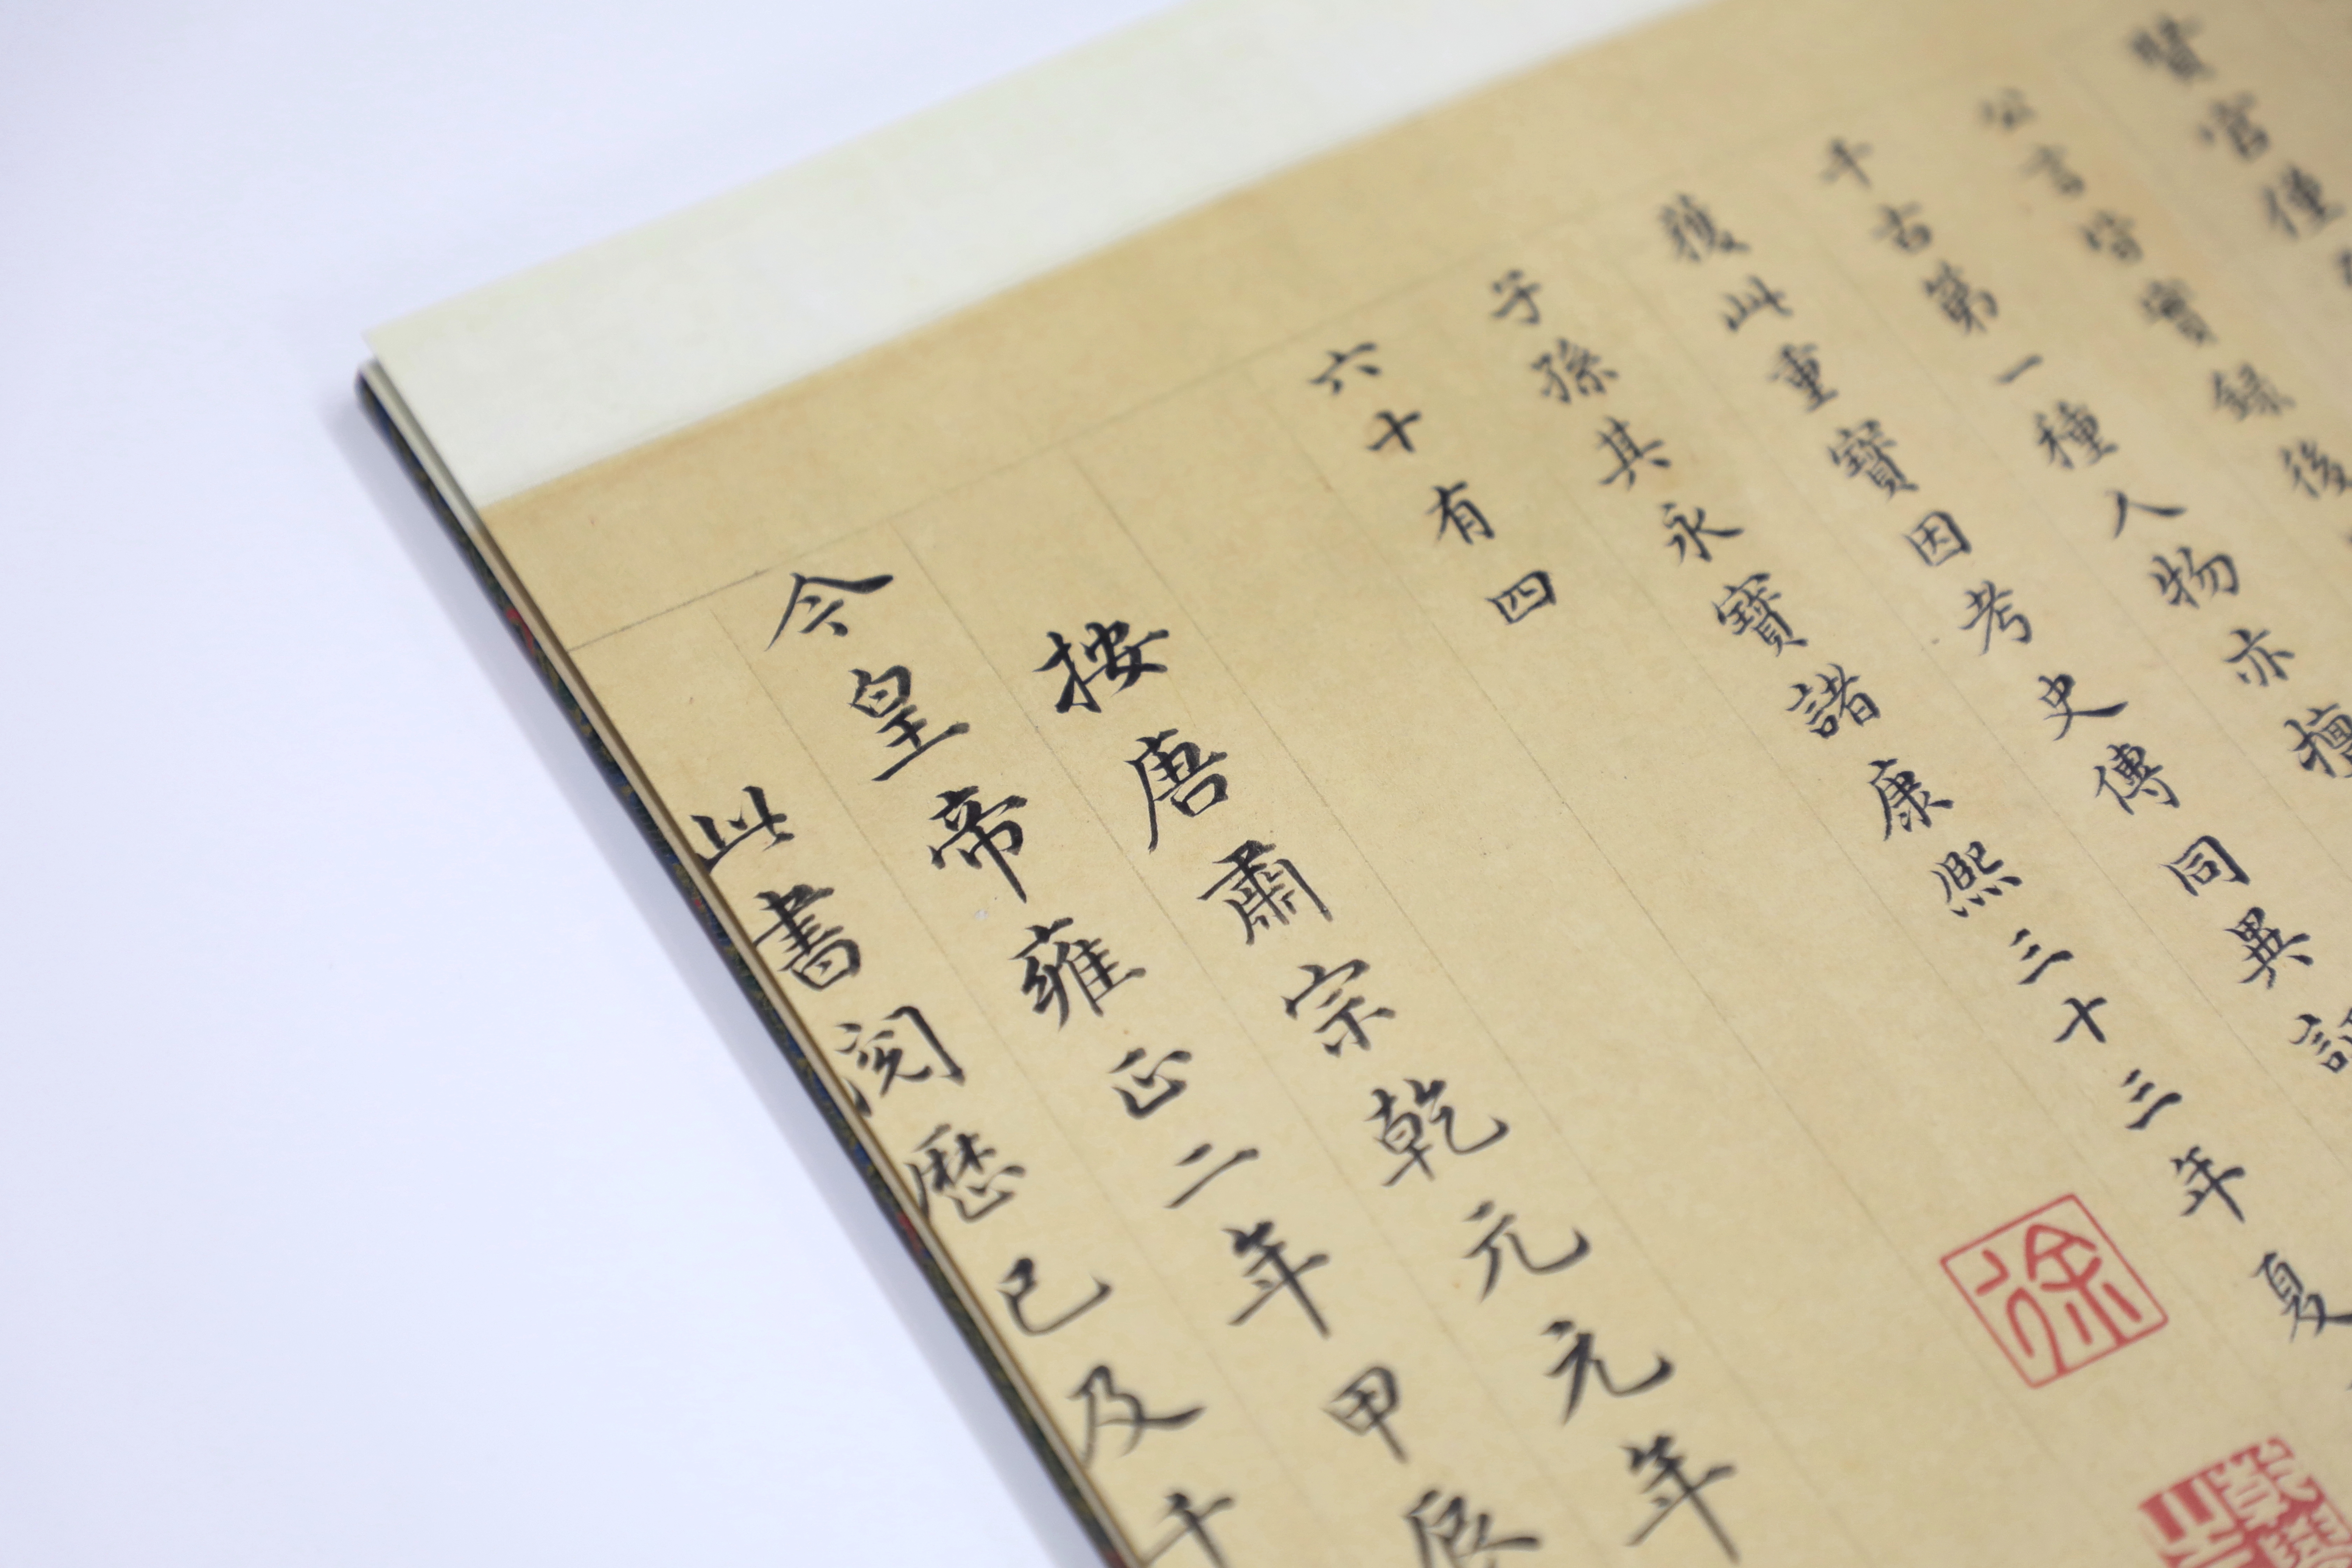 賢宮僅
公言皆實錄後
千古第一種人物亦擅
獲此重寶因考史傳同異
子孫其永寶諸康熙三十三年夏
六十有四
徐
按唐肅宗乾元元年
今皇帝雍正二年甲辰
此書閱歷已及千